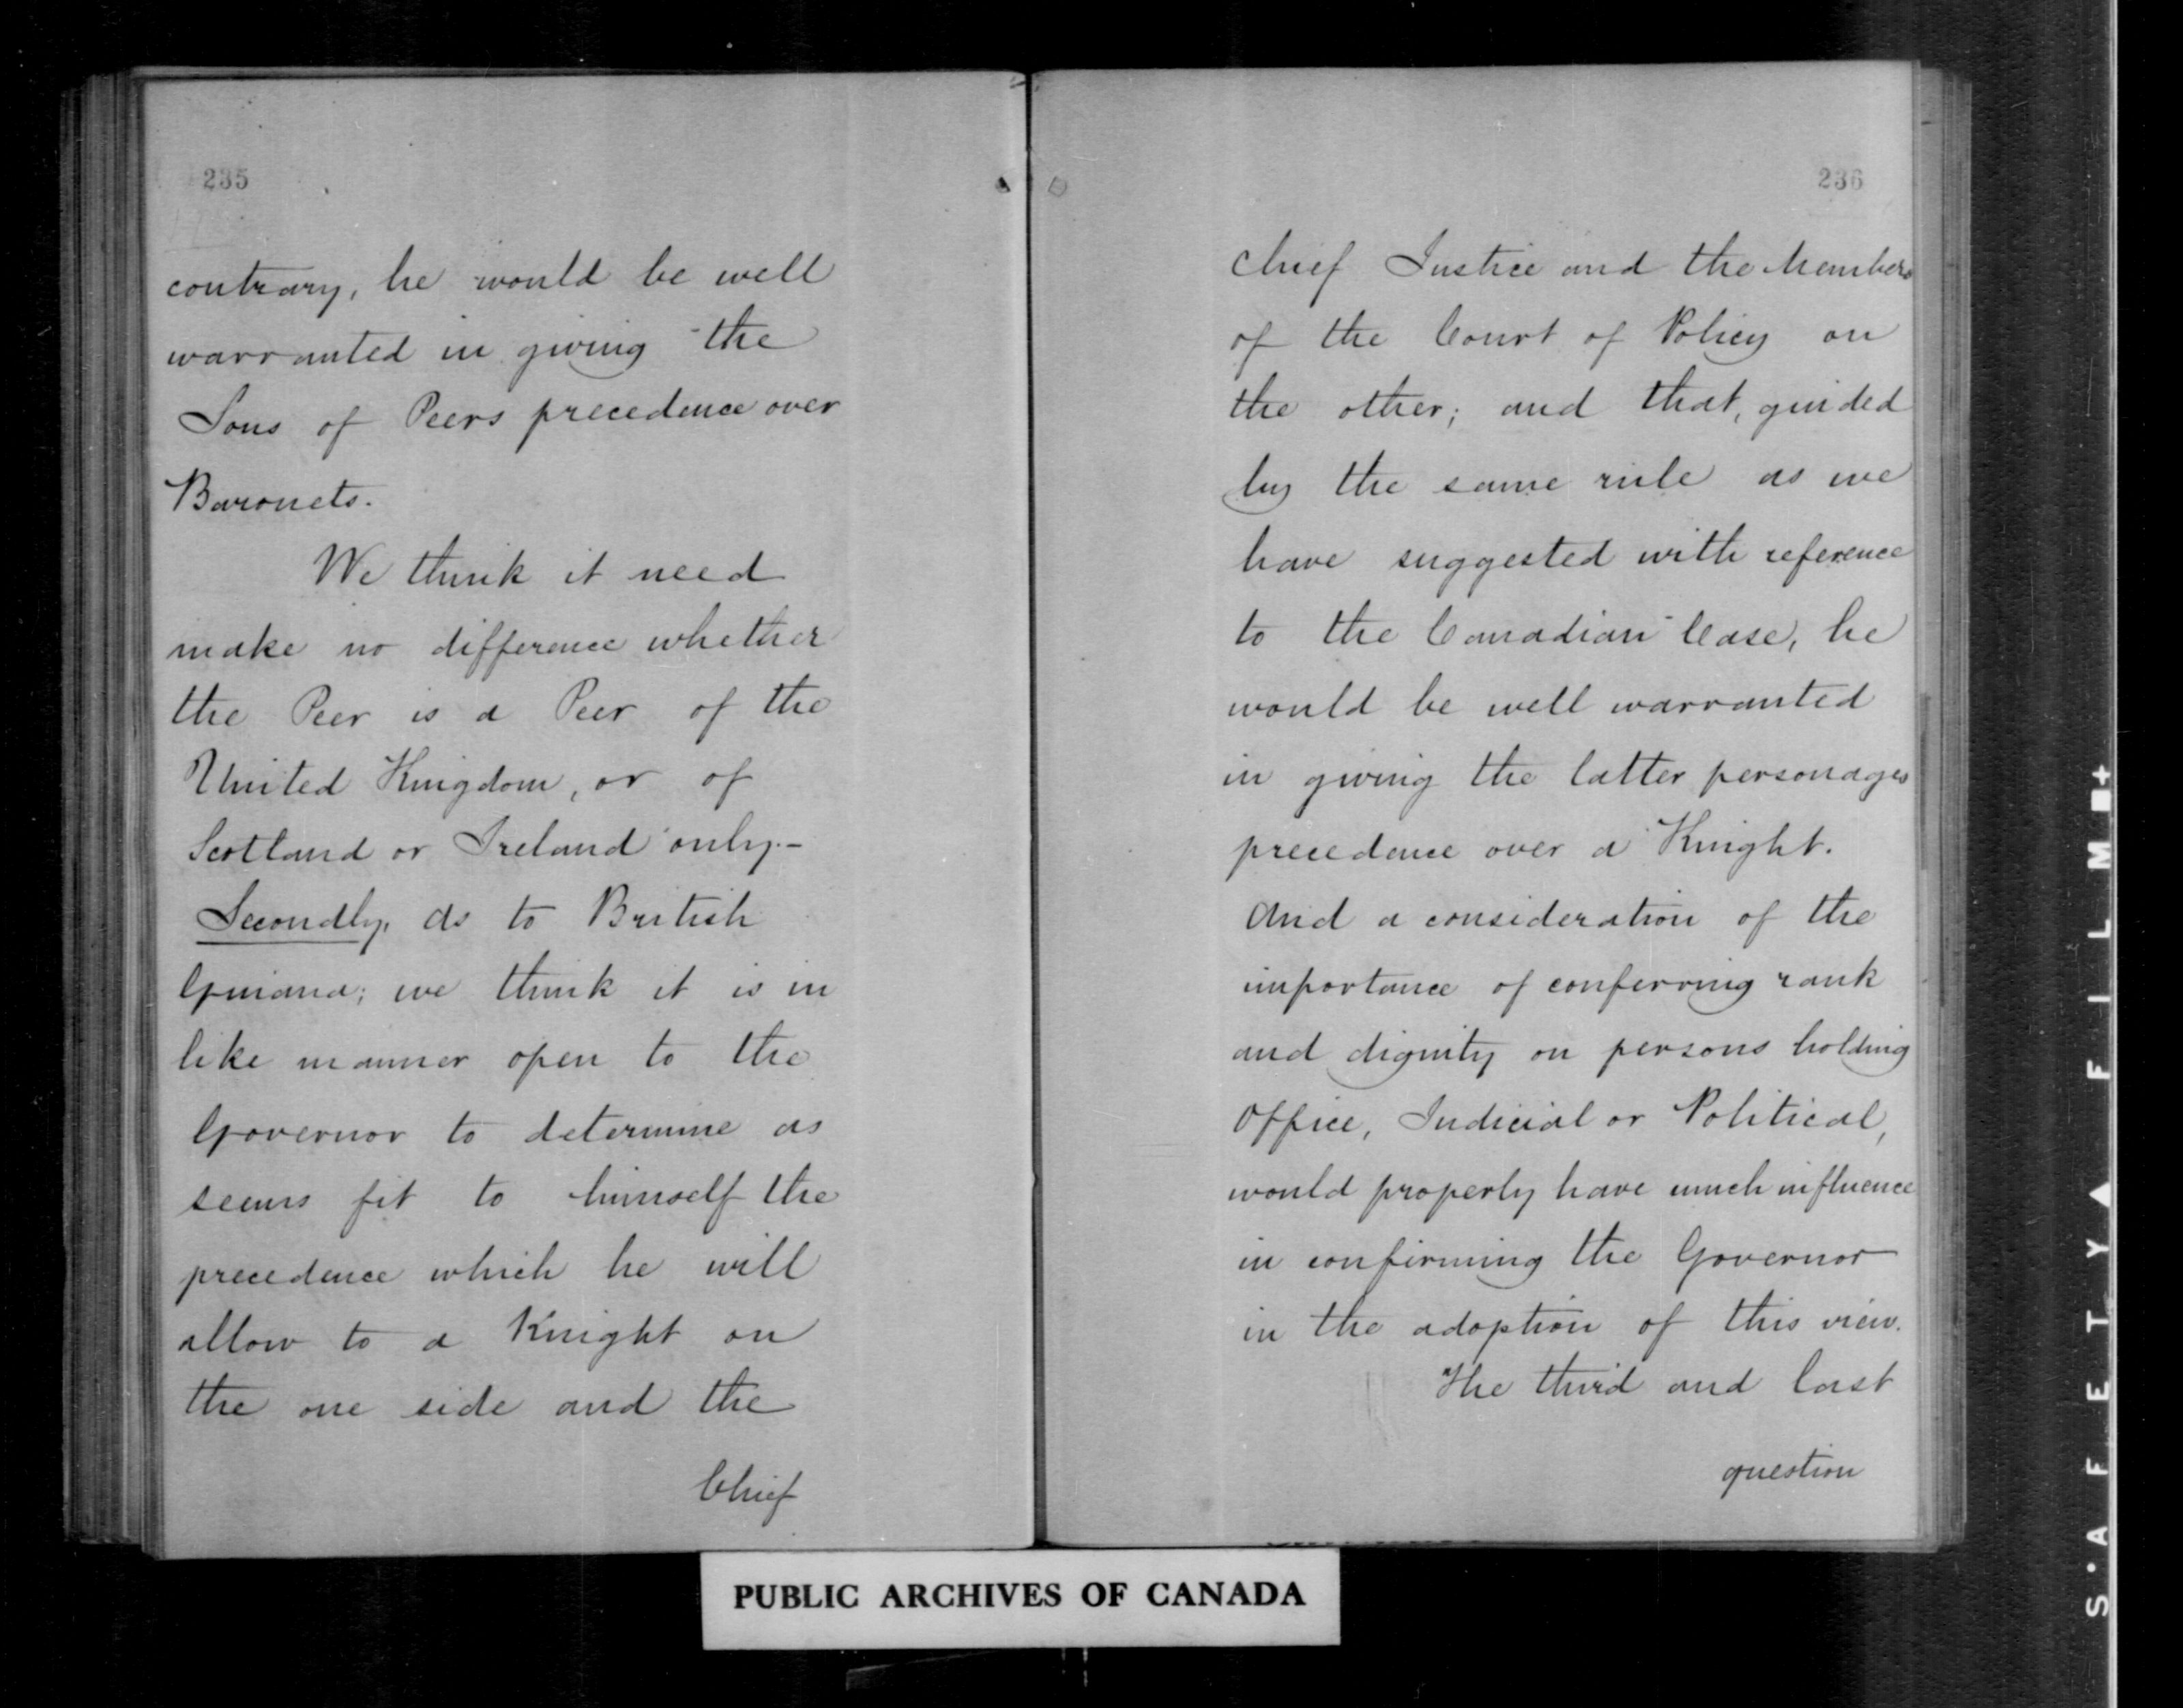 235
contrary, he would be well
warranted in giving the
Sons of Peers precedence over
Baronets.
We think it need
make no difference whether
the Peer is a Peer of the
United Kingdom, or of
Scotland or Ireland only.-
Secondly, as to British
Guiana; we think it is in
like manner open to the
Governor to determine as
seems fit to himself the
precedence which he will
allow to a Knight on
the one side and the
Chief
236
Chief Justice and the Members
of the Court of Policy on
the other; and that, guided
by the same rule as we
have suggested with reference
to the Canadian Case, he
would be well warranted
in giving the latter personages
precedence over a Knight.
And a consideration of the
importance of conferring rank
and dignity on persons holding
Office, Judicial or Political,
would properly have much influence
in confirming the Governor
in the adoption of this view.
The third and last
question
PUBLIC ARCHIVES OF CANADA
S'AFETY▲FILM■+